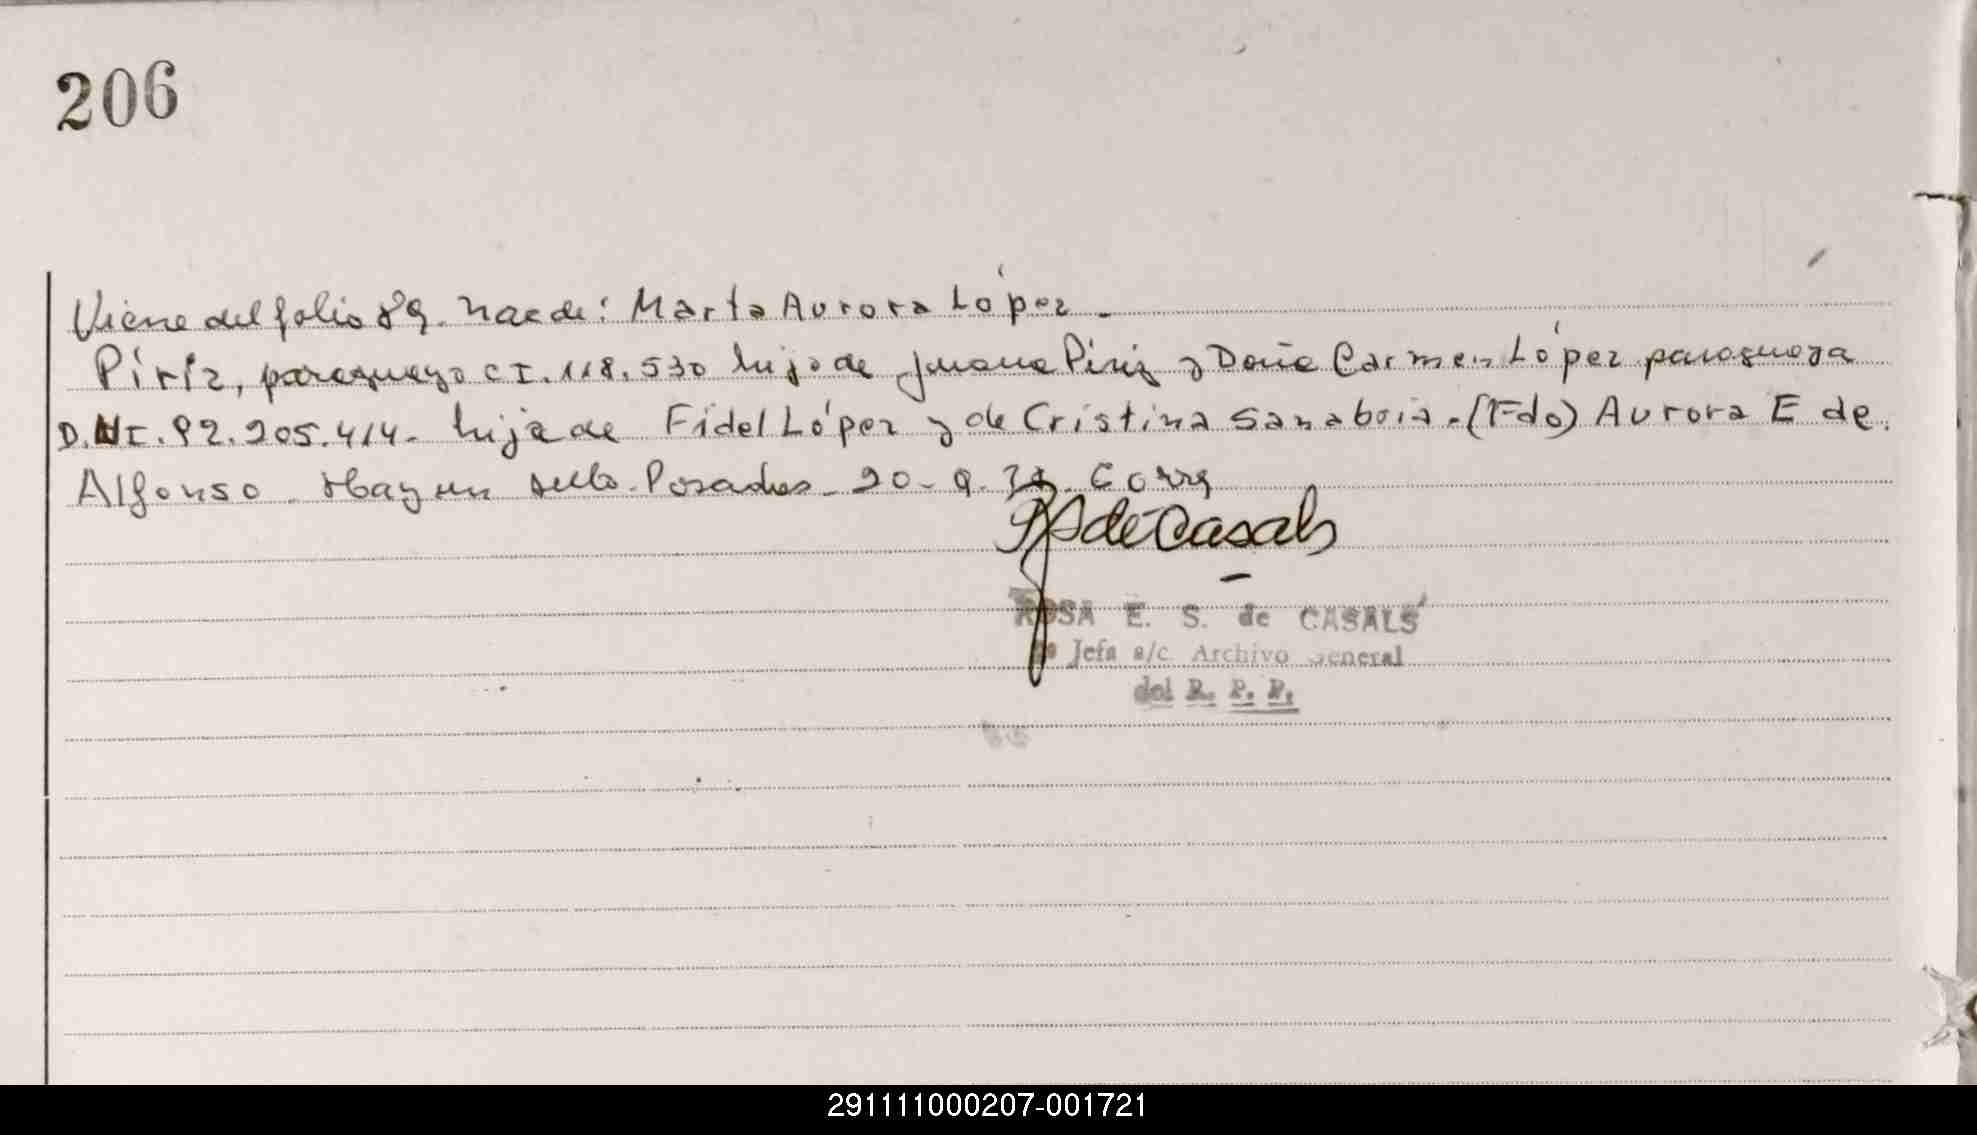 206
Viene del folio 89. Nac de: Marta Aurora López.
Píriz, paraguayo CI. 118.530 hijo de Juana Píriz y Doña Carmen López paraguaya
D.NI. 92.205.414. hija de Fidel López y de Cristina Sanabria. (Fdo) Aurora E de
Alfonso. Hay un sello. Posadas. 20-9. Corrg
RS de Casals
ROSA E. S. de CASALS
Jefa a/c Archivo General
del R. P. P.
291111000207-001721